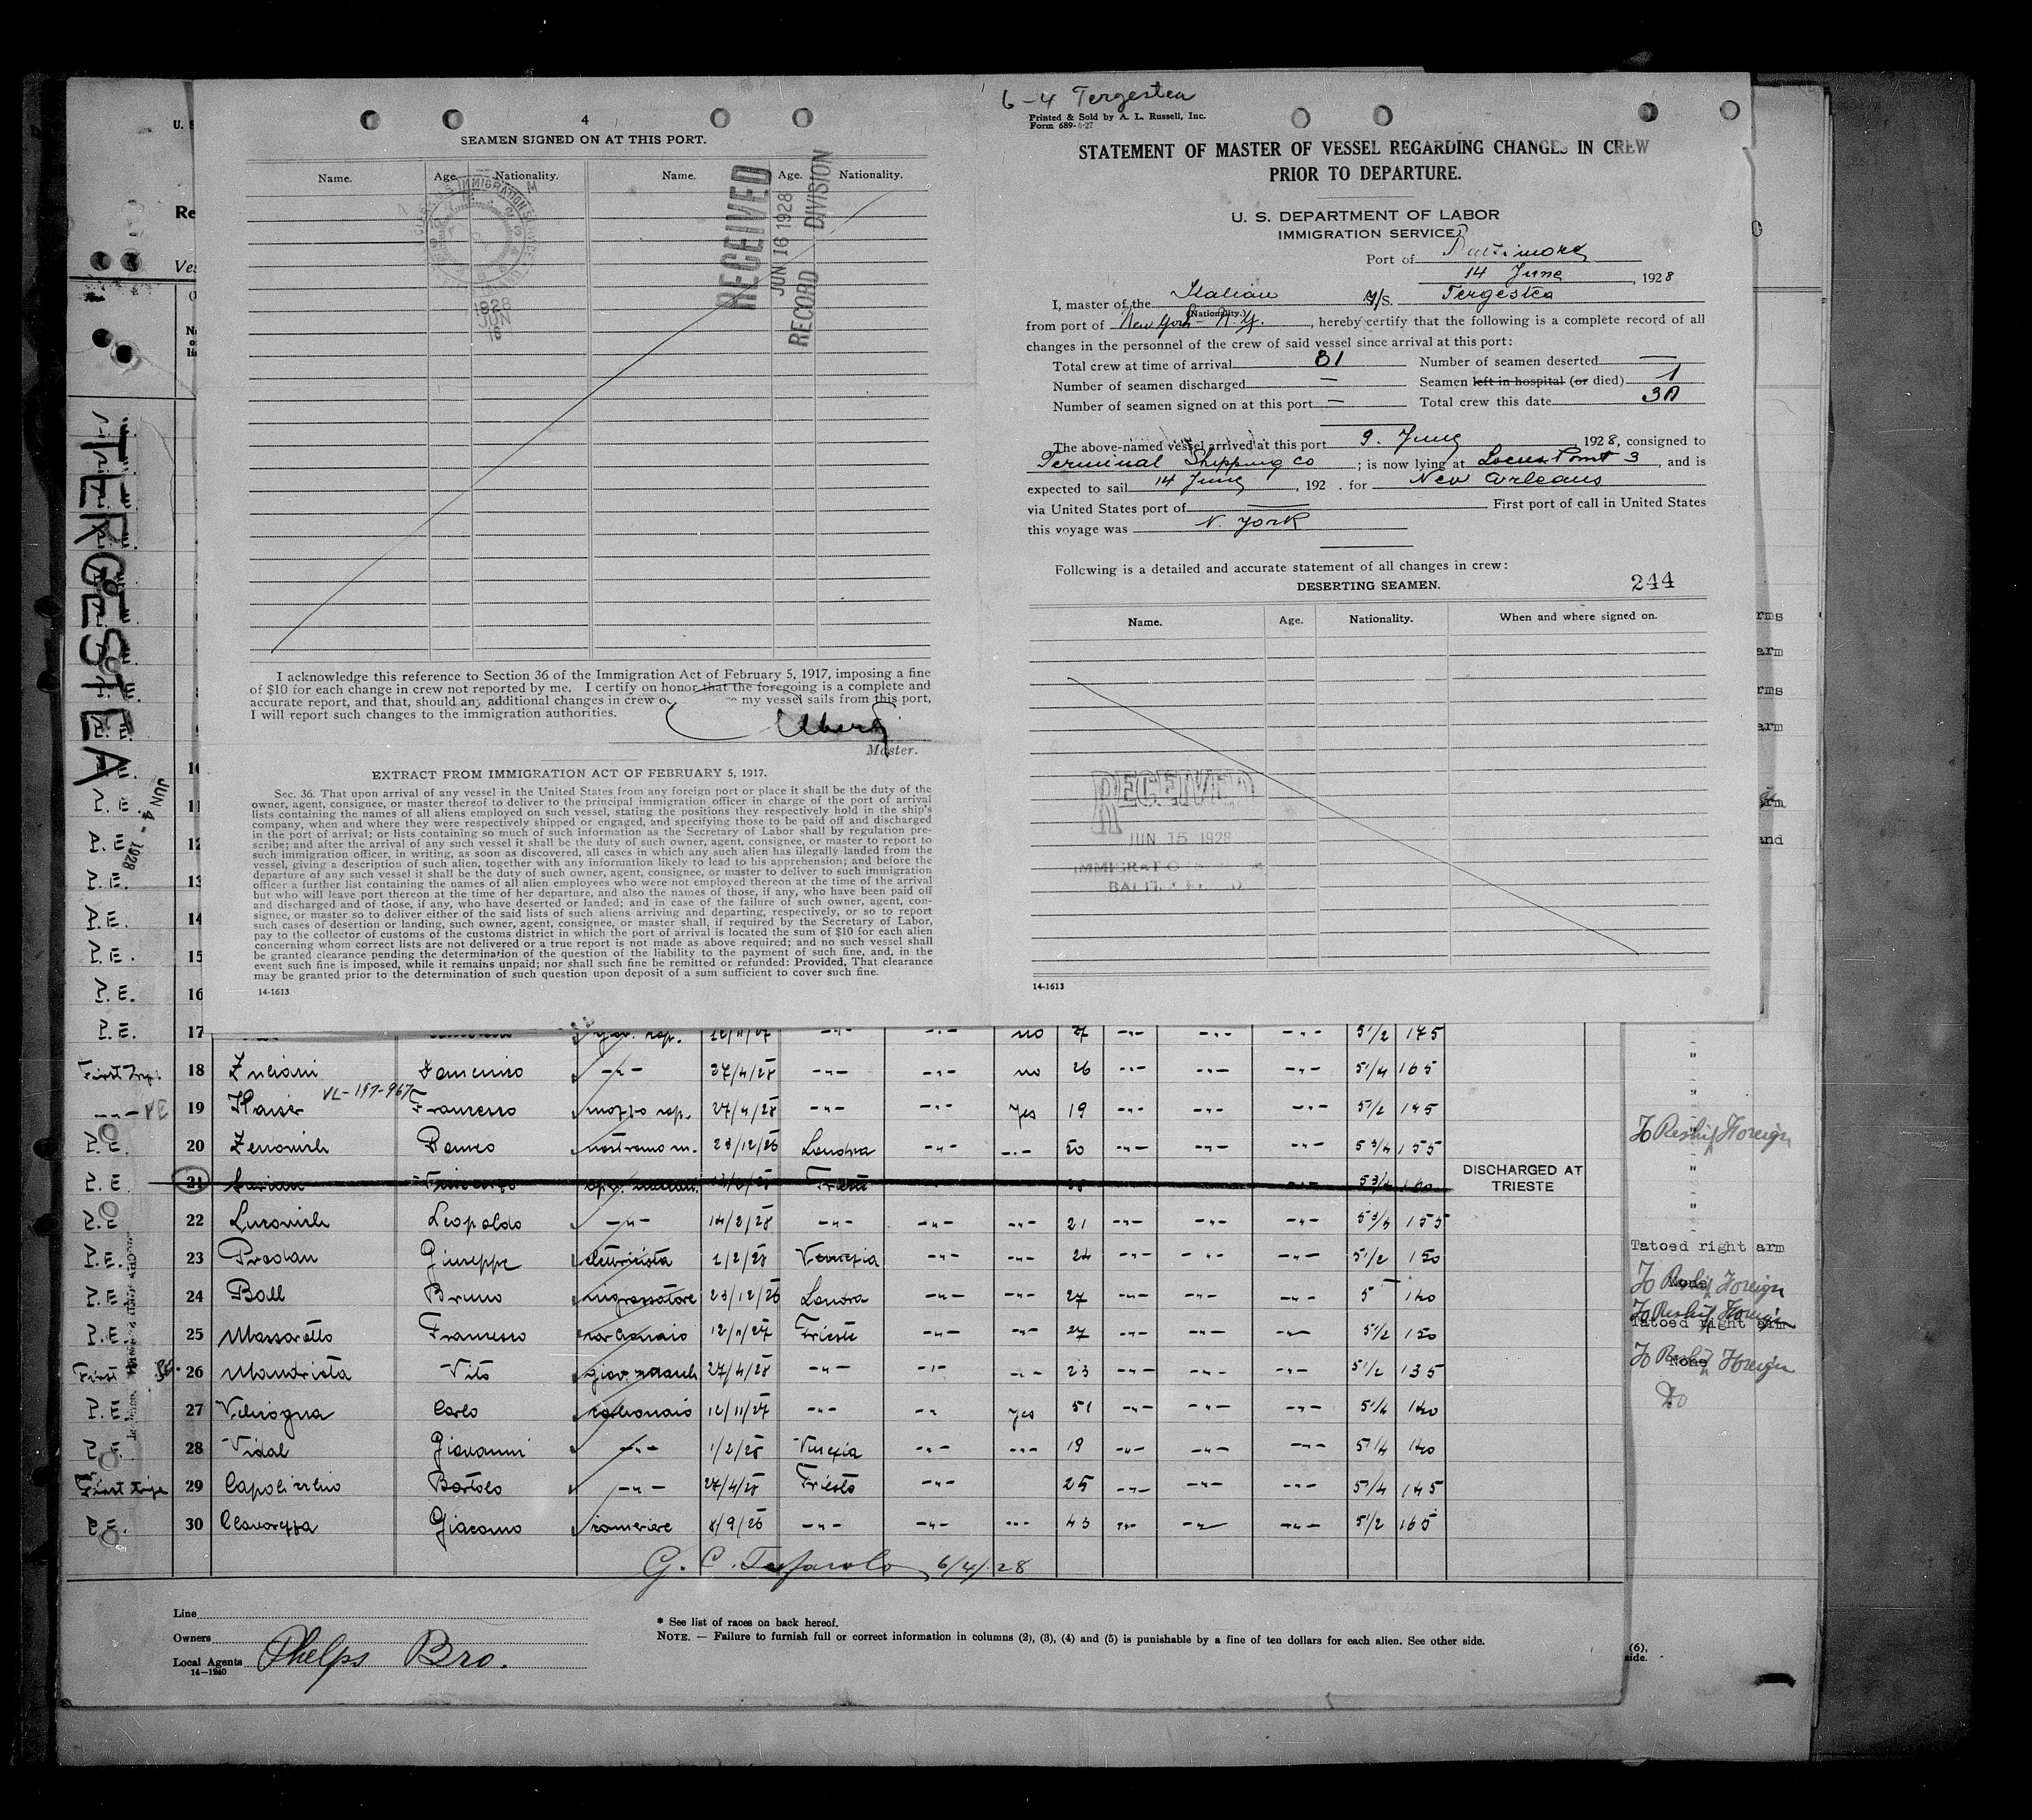 4
SEAMEN SIGNED ON AT THIS PORT.
Name. Age. Nationality. Name. Age. Nationality.
RECEIVED
JUN 16 1928
RECORD DIVISION
1928
JUN
16
I acknowledge this reference to Section 36 of the Immigration Act of February 5, 1917, imposing a fine
of $10 for each change in crew not reported by me. I certify on honor that the foregoing is a complete and
accurate report, and that, should any additional changes in crew my vessel sails from this port,
I will report such changes to the immigration authorities.
Master.
EXTRACT FROM IMMIGRATION ACT OF FEBRUARY 5, 1917.
Sec. 36. That upon arrival of any vessel in the United States from any foreign port or place it shall be the duty of the
owner, agent, consignee, or master thereof to deliver to the principal immigration officer in charge of the port of arrival
lists containing the names of all aliens employed on such vessel, stating the positions they respectively hold in the ship's
company, when and where they were respectively shipped or engaged, and specifying those to be paid off and discharged
in the port of arrival; or lists containing so much of such information as the Secretary of Labor shall by regulation pre-
scribe; and after the arrival of any such vessel it shall be the duty of such owner, agent, consignee, or master to report to
such immigration officer, in writing, as soon as discovered, all cases in which any such alien has illegally landed from the
vessel, giving a description of such alien, together with any information likely to lead to his apprehension; and before the
departure of any such vessel it shall be the duty of such owner, agent, consignee, or master to deliver to such immigration
officer a further list containing the names of all alien employees who were not employed thereon at the time of the arrival
but who will leave port thereon at the time of her departure, and also the names of those, if any, who have been paid off
and discharged and of those, if any, who have deserted or landed; and in case of the failure of such owner, agent, con-
signee, or master so to deliver either of the said lists of such aliens arriving and departing, respectively, or so to report
such cases of desertion or landing, such owner, agent, consignee, or master shall, if required by the Secretary of Labor,
pay to the collector of customs of the customs district in which the port of arrival is located the sum of $10 for each alien
concerning whom correct lists are not delivered or a true report is not made as above required; and no such vessel shall
be granted clearance pending the determination of the question of the liability to the payment of such fine, and, in the
event such fine is imposed, while it remains unpaid; nor shall such fine be remitted or refunded: Provided, That clearance
may be granted prior to the determination of such question upon deposit of a sum sufficient to cover such fine.
14-1613
6-4 Tergestea
Printed & Sold by A. L. Russell, Inc.
Form 689-6-27
STATEMENT OF MASTER OF VESSEL REGARDING CHANGES IN CREW
PRIOR TO DEPARTURE.
U. S. DEPARTMENT OF LABOR
IMMIGRATION SERVICE
Port of Baltimore
14 June, 1928
I, master of the Italian M/S. Tergestea
(Nationality.)
from port of New York - N.Y., hereby certify that the following is a complete record of all
changes in the personnel of the crew of said vessel since arrival at this port:
Total crew at time of arrival 31 Number of seamen deserted —
Number of seamen discharged — Seamen left in hospital (or died) 1
Number of seamen signed on at this port — Total crew this date 30
The above-named vessel arrived at this port 9. June 1928, consigned to
Terminal Shipping Co; is now lying at Locus Point 3, and is
expected to sail 14 June, 192 . for New Orleans
via United States port of — First port of call in United States
this voyage was N. York
Following is a detailed and accurate statement of all changes in crew:
DESERTING SEAMEN. 244
Name. Age. Nationality. When and where signed on.
RECEIVED
JUN 15 1928
TERGESTEA
JUN 4 - 1928
P.E. 11
P.E. 12
P.E. 13
P.E. 14
P.E. 15
P.E. 16
P.E. 17 no 27 -"- -"- -"- 5 1/2 175
First Trip. 18 -"- 27/4/28 -"- -"- no 26 -"- -"- -"- 5 1/4 165
-"- PE 19 VL-197-967 Francesco 27/4/28 -"- -"- yes 19 -"- -"- -"- 5 1/2 145
P.E. 20 Zenovich Romeo nostromo m. 23/12/26 Londra -"- -"- 50 -"- -"- -"- 5 3/4 155 To Reship Foreign
P.E. 21 Trieste 5 3/4 DISCHARGED AT TRIESTE
P.E. 22 Leopoldo -"- 14/2/28 -"- -"- -"- 21 -"- -"- -"- 5 3/4 155
P.E. 23 Predan Giuseppe elettricista 2/2/28 Venezia -"- -"- 24 -"- -"- -"- 5 1/2 150 Tatoed right arm
P.E. 24 Ball Bruno ingrassatore 23/12/26 Londra -"- -"- 27 -"- -"- -"- 5 140 None To Reship Foreign
P.E. 25 Massarotto Francesco carbonaio 12/11/27 Trieste -"- -"- 27 -"- -"- -"- 5 1/2 150 Tatoed right arm To Reship Foreign
First P.E. 26 Mandriota Vito 27/4/28 -"- -"- -"- 23 -"- -"- -"- 5 1/2 135 None To Reship Foreign
P.E. 27 Carlo carbonaio 12/11/27 -"- -"- yes 51 -"- -"- -"- 5 1/4 140 Do
P.E. 28 Vidal Giovanni -"- 1/2/28 Venezia -"- -"- 19 -"- -"- -"- 5 1/4 140
First trip 29 Bortolo -"- 27/4/28 Trieste -"- 25 -"- -"- -"- 5 1/4 145
P.E. 30 Giacomo 8/9/26 -"- -"- -"- 43 -"- -"- -"- 5 1/2 165
6/4/28
Line
Owners
Local Agents Phelps Bro.
14-1240
* See list of races on back hereof.
NOTE. — Failure to furnish full or correct information in columns (2), (3), (4) and (5) is punishable by a fine of ten dollars for each alien. See other side.
(6),
side.